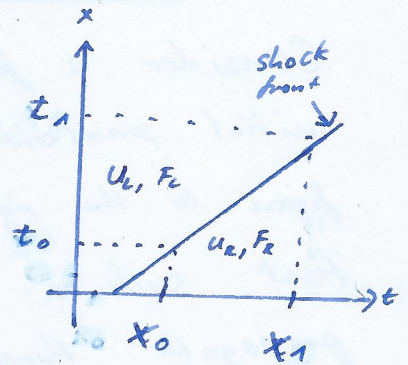 x
shock
front
t₁
U_L, F_L
t₀
U_R, F_R
t
x₀
x₁